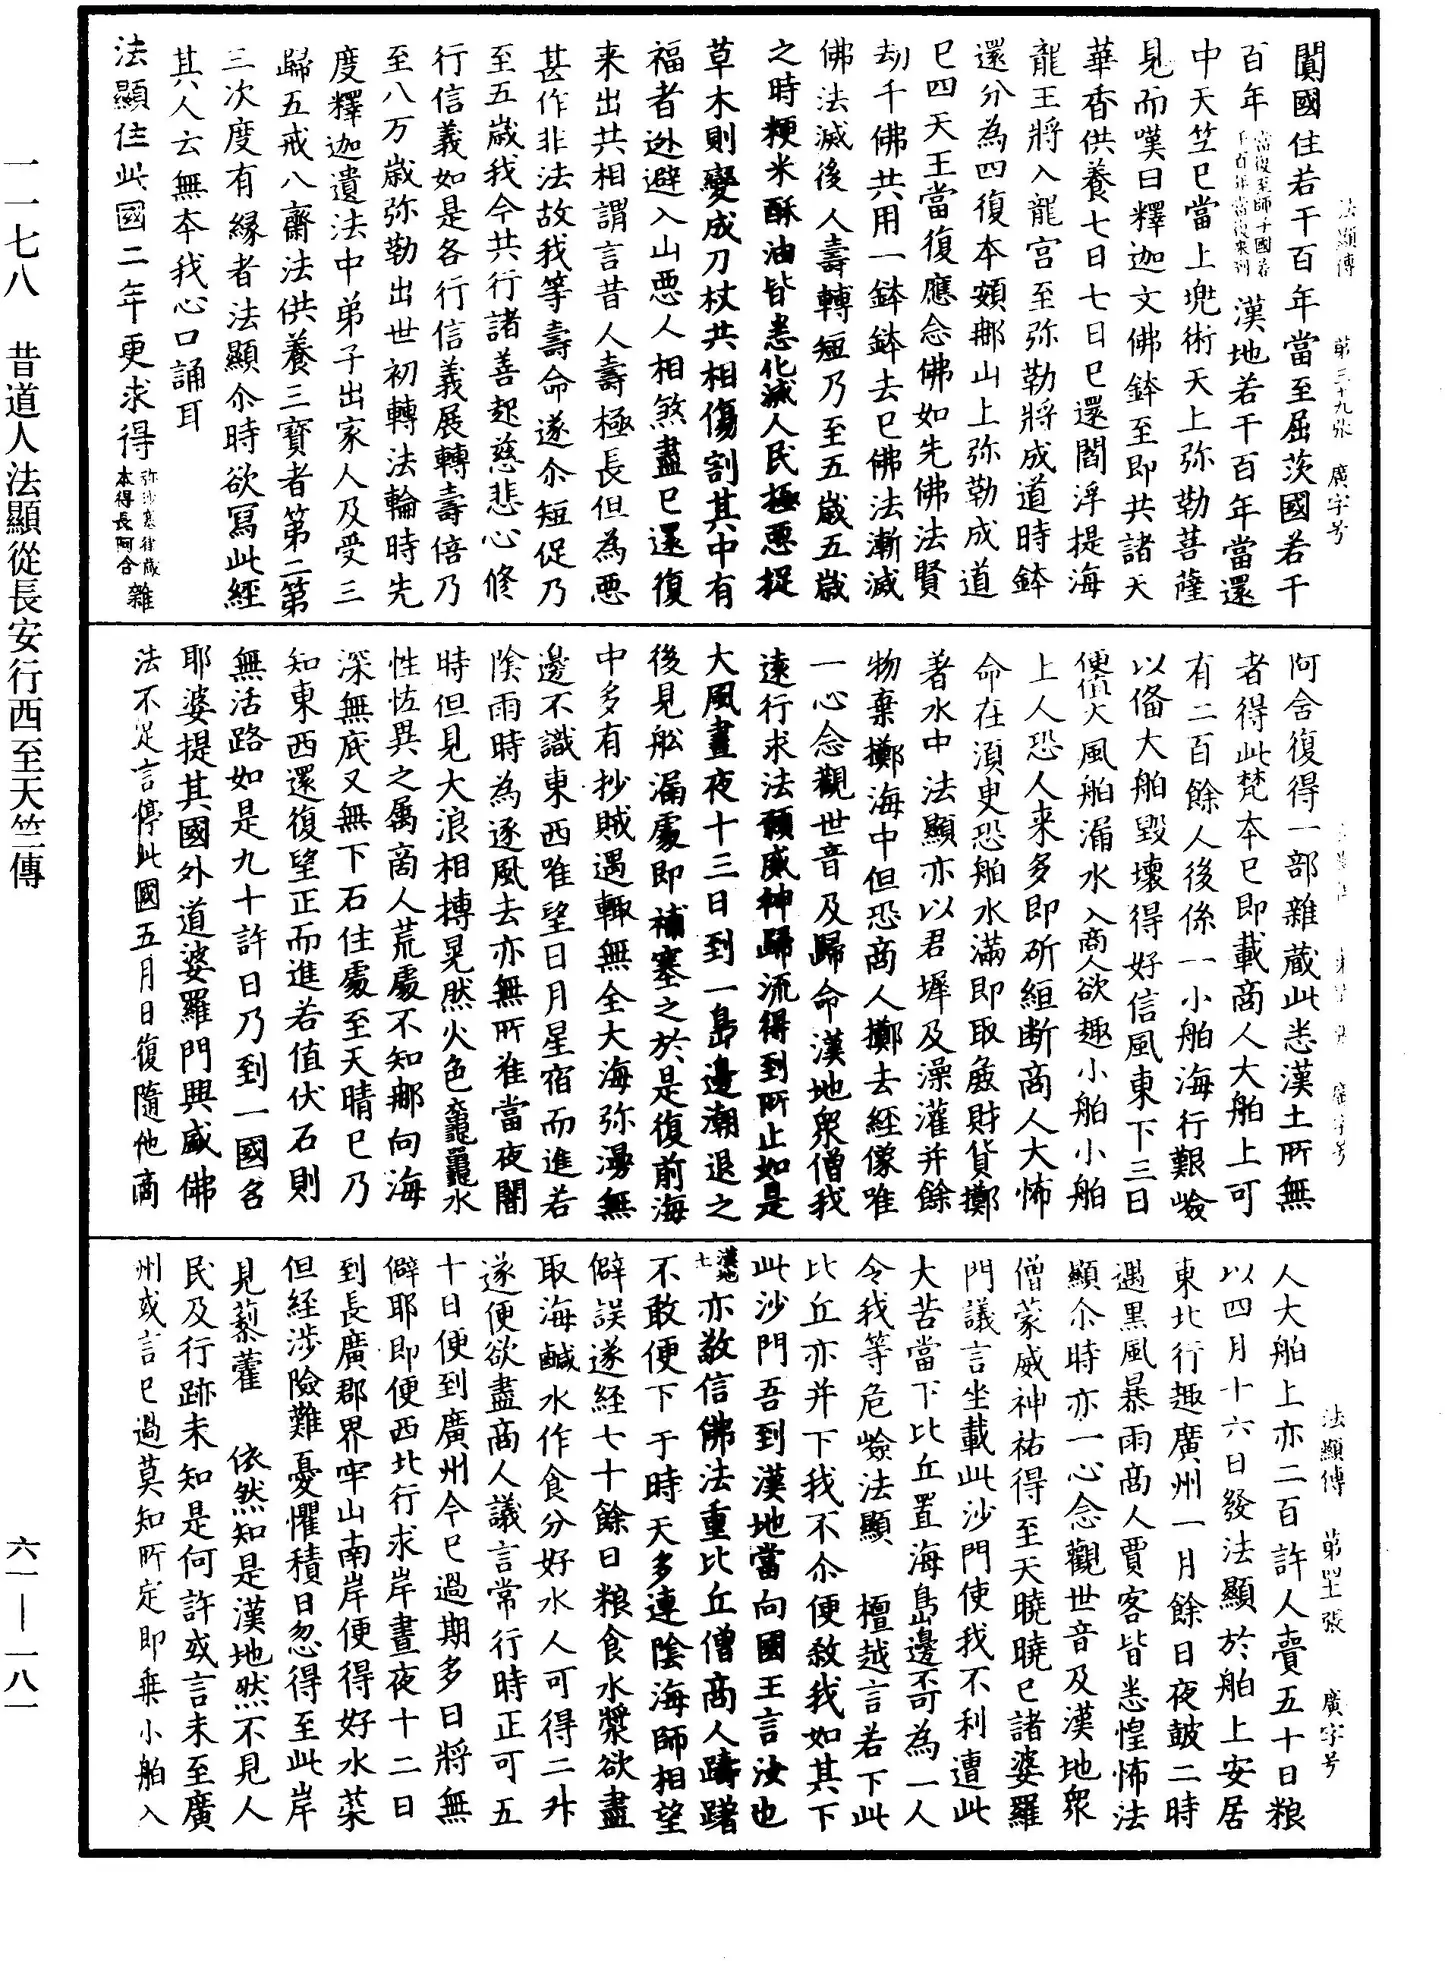 法顯傳　第三十九張　廣字号
闐國住若干百年當至屈茨國若干
百年當復至師子國若干百年當復來到漢地若干百年當還
中天竺巳當上兜術天上弥勒菩薩
見而嘆曰釋迦文佛鉢至即共諸天
華香供養七日七日巳還閻浮提海
龍王將入龍宮至弥勒將成道時鉢
還分為四復本頞那山上弥勒成道
巳四天王當復應念佛如先佛法賢
劫千佛共用一鉢鉢去巳佛法漸滅
佛法滅後人壽轉短乃至五歲五歲
之時粳米酥油皆悉化滅人民極惡捉
草木則變成刀杖共相傷割其中有
福者逃避入山惡人相煞盡巳還復
来出共相謂言昔人壽極長但為惡
甚作非法故我等壽命遂尒短促乃
至五歲我今共行諸善起慈悲心修
行信義如是各行信義展轉壽倍乃
至八万歲弥勒出世初轉法輪時先
度釋迦遺法中弟子出家人及受三
歸五戒八齋法供養三寶者第二第
三次度有緣者法顯尒時欲寫此經
其人云無夲我心口誦耳
法顯住此國二年更求得弥沙塞律藏本得長阿含雜
阿含復得一部雜藏此悉漢土所無
者得此梵本巳即載商人大舶上可
有二百餘人後係一小舶海行艱嶮
以俻大舶毀壞得好信風東下三日
便值大風舶漏水入商人欲趣小舶小舶
上人恐人来多即斫絙斷商人大怖
命在湏臾恐舶水滿即取麁財貨擲
著水中法顯亦以君墀及澡灌并餘
物棄擲海中但恐商人擲去經像唯
一心念觀世音及歸命漢地眾僧我
遠行求法願威神歸流得到所止如是
大風晝夜十三日到一島邊潮退之
後見舩漏處即補塞之於是復前海
中多有抄賊遇輙無全大海弥漫無
邊不識東西唯望日月星宿而進若
陰雨時為逐風去亦無所准當夜闇
時但見大浪相搏晃然火色黿鼉水
性恠異之属商人荒處不知那向海
深無底又無下石住處至天晴巳乃
知東西還復望正而進若值伏石則
無活路如是九十許日乃到一國名
耶婆提其國外道婆羅門興盛佛
法不足言停此國五月日復隨他商
法顯傳　第四十張　廣字号
人大舶上亦二百許人賷五十日粮
以四月十六日發法顯於舶上安居
東北行趣廣州一月餘日夜皷二時
遇黑風暴雨商人賈客皆悉惶怖法
顯尒時亦一心念觀世音及漢地眾
僧蒙威神祐得至天曉曉巳諸婆羅
門議言坐載此沙門使我不利遭此
大苦當下比丘置海島邊不可為一人
令我等危嶮法顯　檀越言若下此
比丘亦并下我不尒便敘我如其下
此沙門吾到漢地當向國王言汝也
漢地王亦敬信佛法重比丘僧商人躊躇
不敢便下于時天多連陰海師相望
僻誤遂經七十餘日粮食水漿欲盡
取海鹹水作食分好水人可得二升
遂便欲盡商人議言常行時正可五
十日便到廣州今巳過期多日將無
僻耶即便西北行求岸晝夜十二日
到長廣郡界牢山南岸便得好水菜
但經涉險難憂懼積日忽得至此岸
見藜藿　依然知是漢地然不見人
民及行跡未知是何許或言未至廣
州或言巳過莫知所定即乗小舶入
一一七八　昔道人法顯從長安行西至天竺傳
六一—一八一